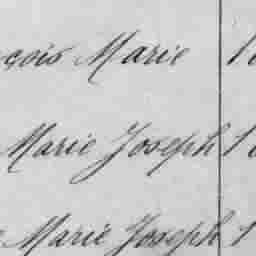 çois Marie 1
Marie Joseph 1
Marie Joseph 1